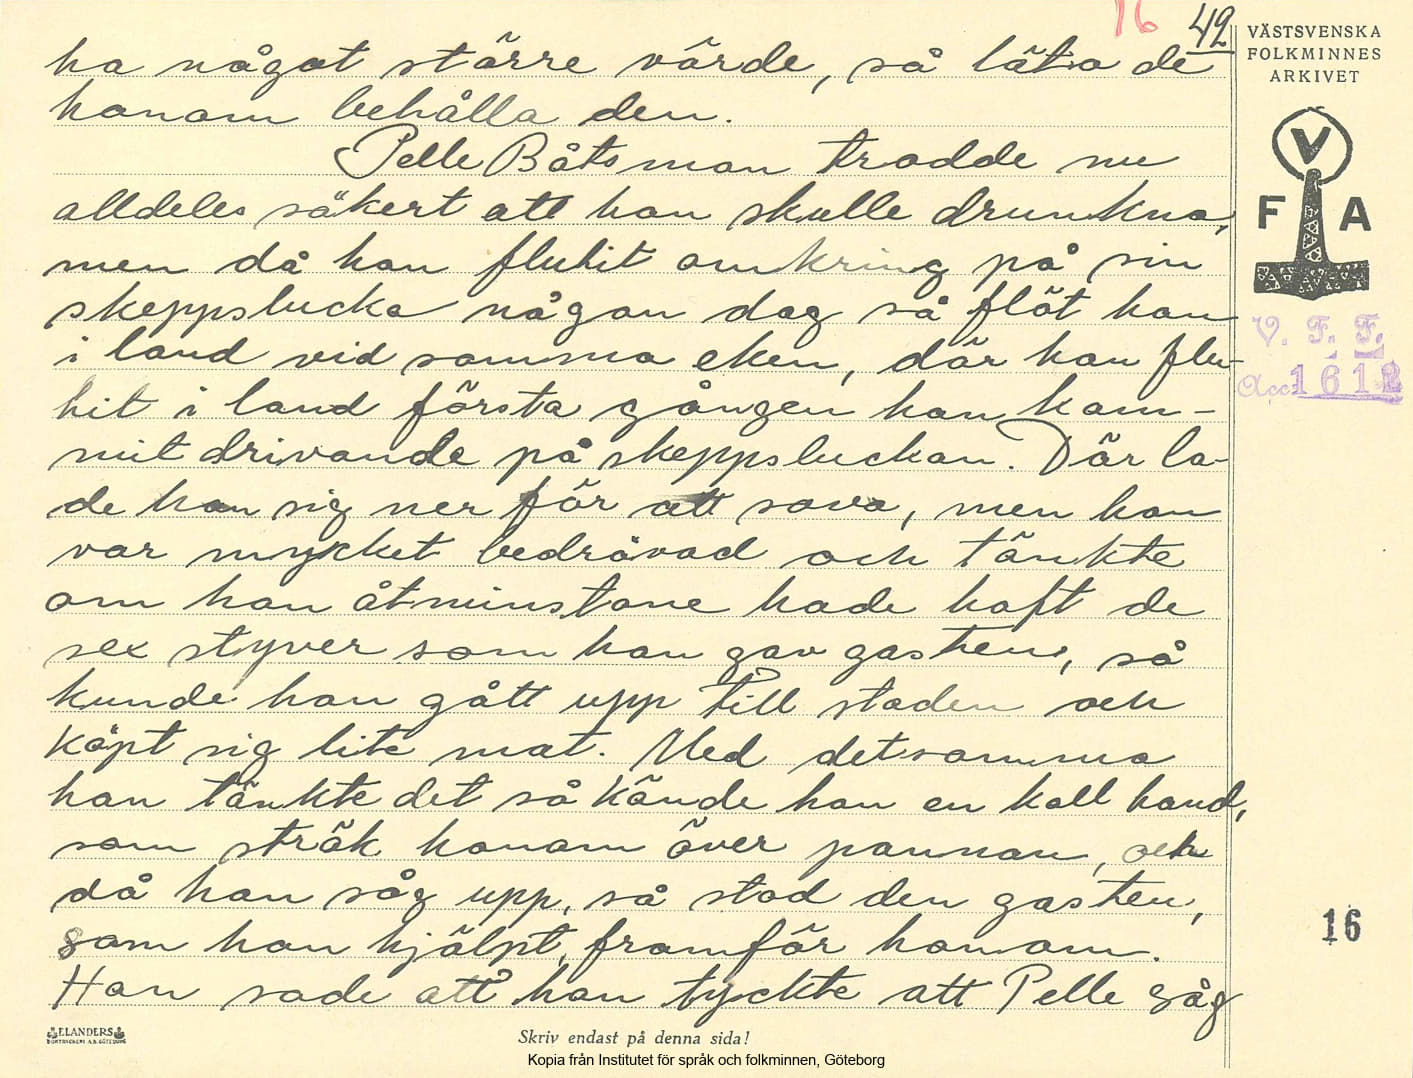 16 42
VÄSTSVENSKA
FOLKMINNES
ARKIVET
V
F A
V. F. F.
Acc. 1612
ha något större värde, så läto de
honom behålla den.
Pelle Båtsman trodde nu
alldeles säkert att han skulle drunkna,
men då han flutit omkring på sin
skeppslucka någon dag så flöt han
i land vid samma eken, där han flu-
tit i land första gången han kom-
mit drivande på skeppsluckan. Där la-
de han sig ner för att sova, men han
var mycket bedrövad och tänkte
om han åtminstone hade haft de
sex styver som han gav gasten, så
kunde han gått upp till staden och
köpt sig lite mat. Med detsamma
han tänkte det så kände han en kall hand,
som strök honom över pannan, och
då han såg upp, så stod den gasten,
som han hjälpt, framför honom.
Han sade att han tyckte att Pelle såg
16
ELANDERS
BOKTRYCKERI A.B. GÖTEBORG
Skriv endast på denna sida!
Kopia från Institutet för språk och folkminnen, Göteborg